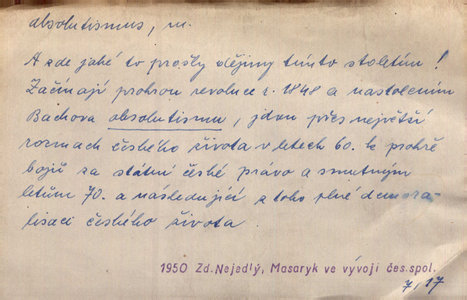 absolutismus, m.
A zde jaké to prošly dějiny tímto stoletím!
Začínají prohrou revoluce r. 1848 a nastolením
Bachova absolutismu, jdou přes největší
rozmach českého života v letech 60. k prohře
bojů za státní české právo a smutným
letům 70. a následující z toho plné demora-
lisaci českého života
1950 Zd. Nejedlý, Masaryk ve vývoji čes. spol.
7, 17